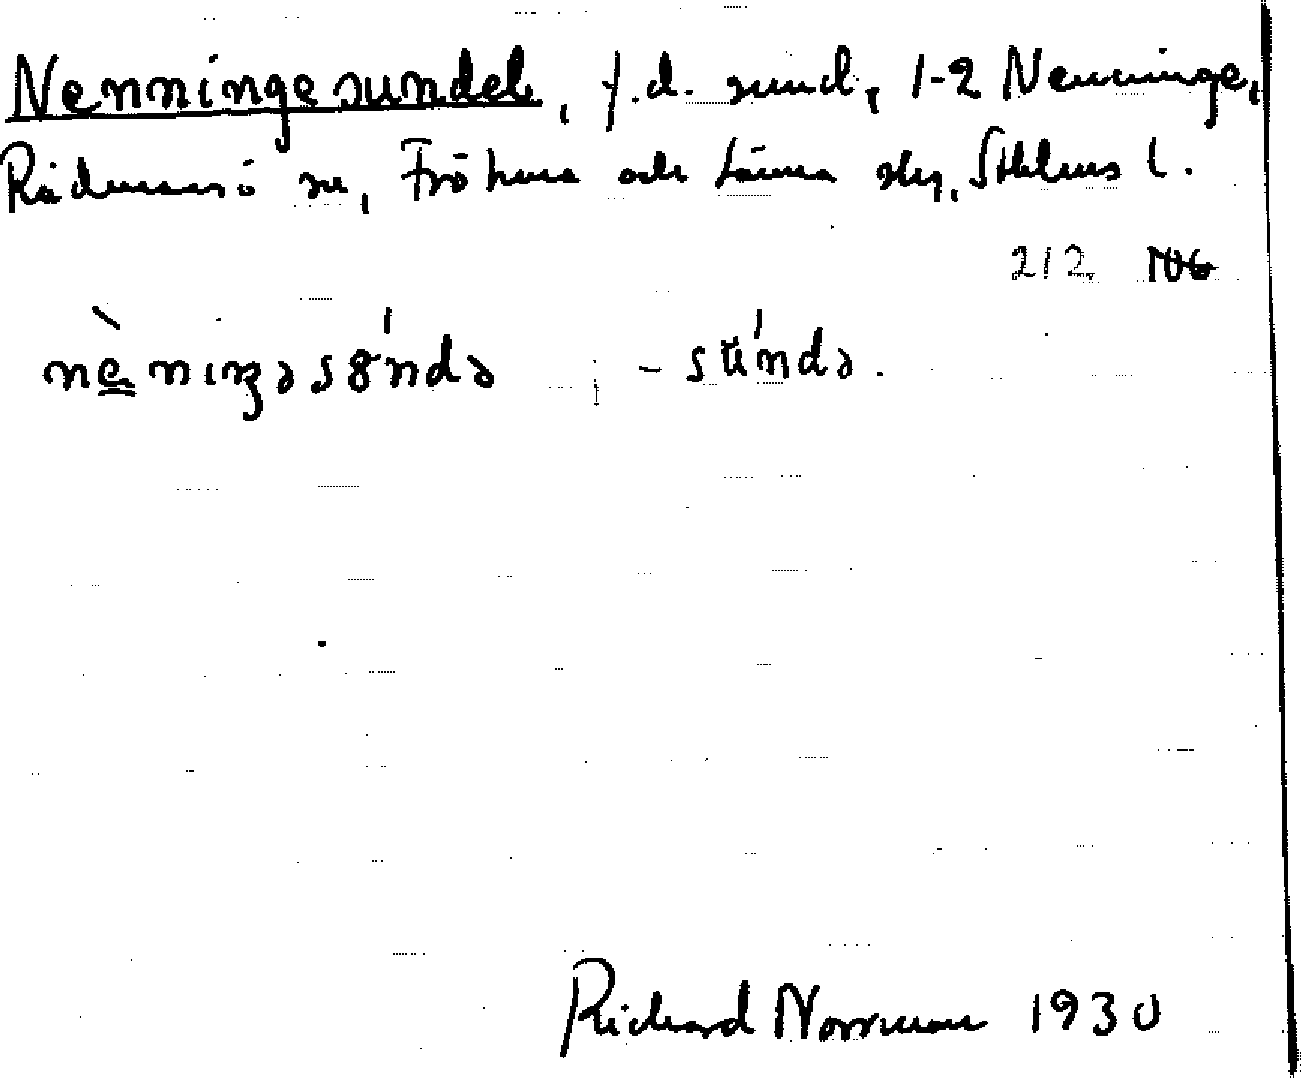 Nenningesundet, f.d. sund, 1-2 Nenninge,
Rådmansö sn, Frötuna och Länna skg, Sthlms l.
212 106
nèniŋəsó̵ndə ; -stúndə.
Richard Norrman 1930